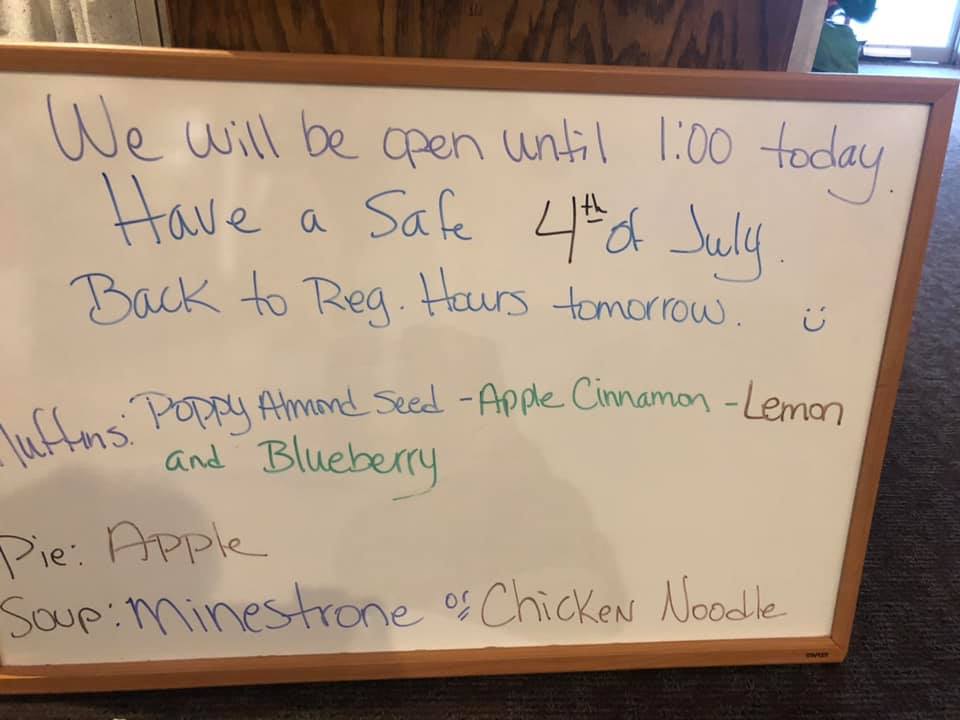 We will be open until 1:00 today.
Have a Safe 4th of July.
Back to Reg. Hours tomorrow. :)
Muffins: Poppy Almond Seed - Apple Cinnamon - Lemon
and Blueberry
Pie: Apple
Soup: Minestrone or Chicken Noodle